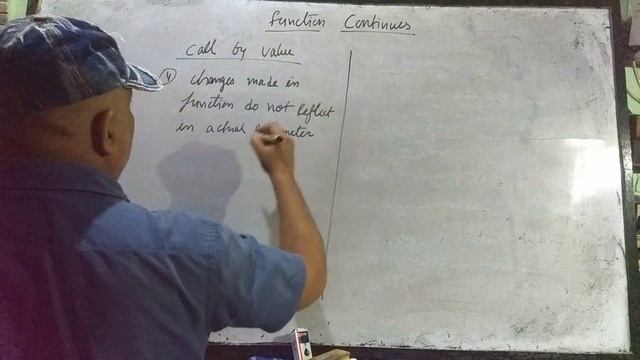 Function Continues
Call by value
1) Changes made in
function do not Reflect
in actual